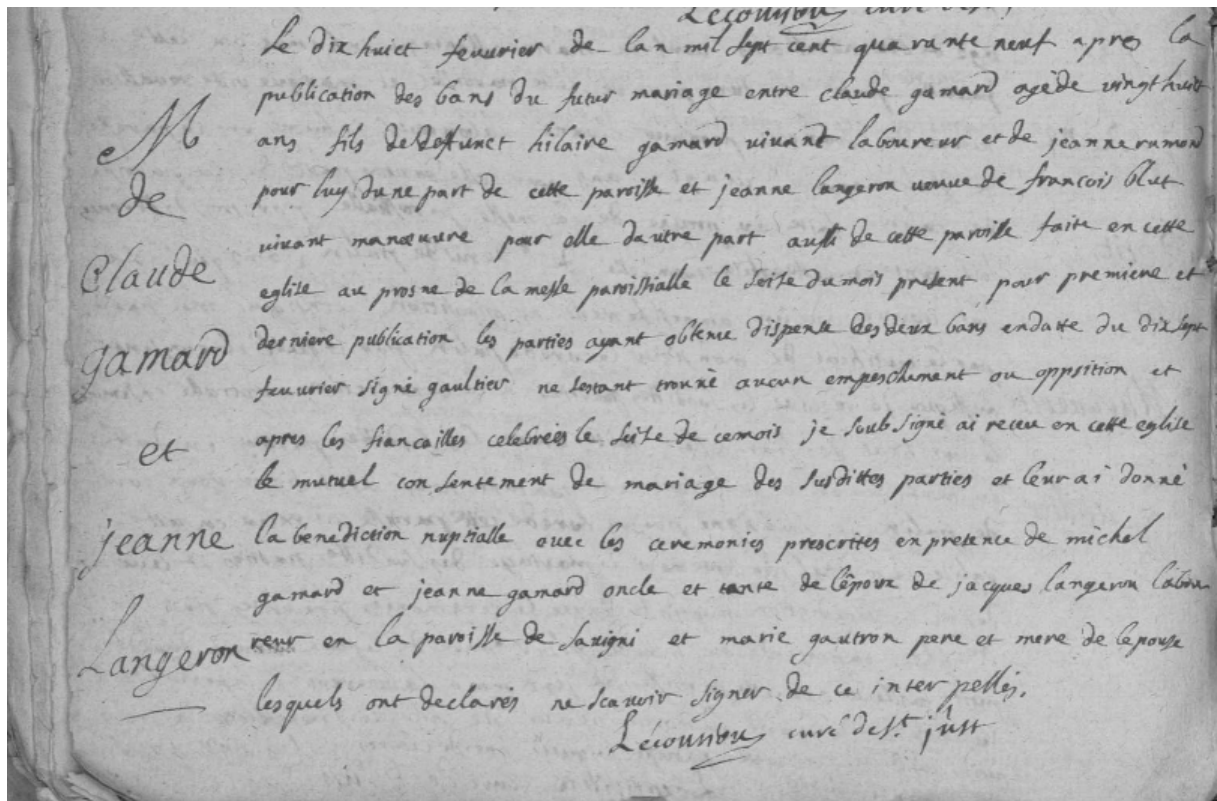 curé de st
Le dix huict feuurier de lan mil sept cent quarante neuf apres la
M
publication des bans du futur mariage entre claude gamard agé de vingt huit
ans fils de deffunct hilaire gamard vivant laboureur et de jeanne rumond
de
pour luy dune part de cette paroisse et jeanne langeron veuve de francois blut
vivant manœuvre pour elle dautre part aussi de cette paroisse faite en cette
Claude
eglise au prosne de la messe paroissialle le seise du mois present pour premiere et
gamard
derniere publication les parties ayant obtenue dispense des deux bans endatte du dix sept
feuurier signé gaultier ne sestant trouué aucun empeschement ou oppsition et
et
apres les fiancailles celebreés le seise de cemois je soub signé ai receu en cette eglise
le mutuel consentement de mariage des susdittes parties et leur ai donné
jeanne
la benediction nuptialle avec les ceremonies prescrites en presence de michel
gamard et jeanne gamard oncle et tante de lépoux de jacques langeron labou
Langeron
reur en la paroisse de savigni et marie gautron pere et mere de lepouse
lesquels ont declarés ne scavoir signer de ce interpellés.
curé de st. just